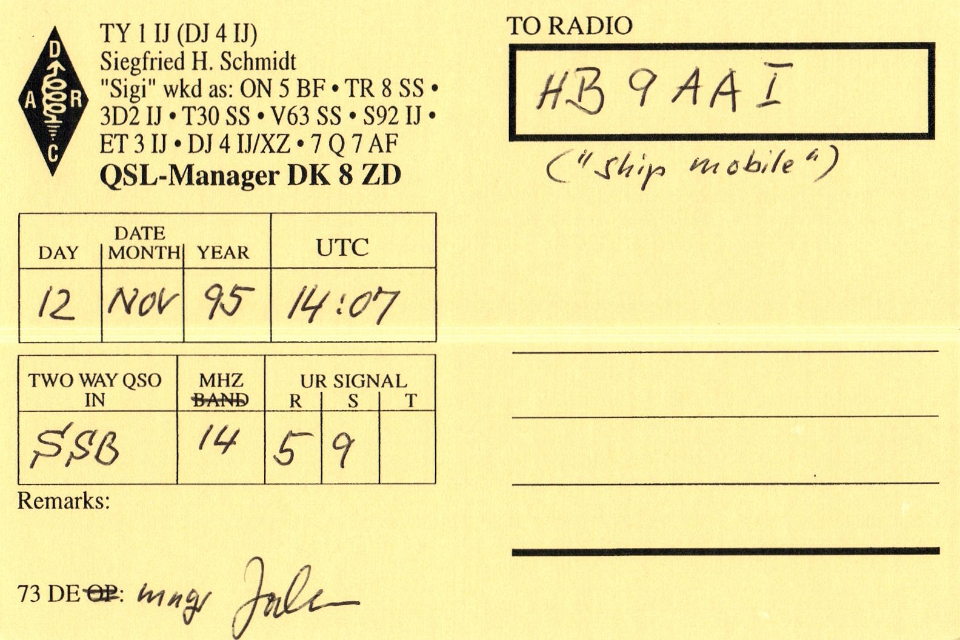 D
A R
C
TY 1 IJ (DJ 4 IJ)
Siegfried H. Schmidt
"Sigi" wkd as: ON 5 BF • TR 8 SS •
3D2 IJ • T30 SS • V63 SS • S92 IJ •
ET 3 IJ • DJ 4 IJ/XZ • 7 Q 7 AF
QSL-Manager DK 8 ZD
TO RADIO
HB 9 AAI
("ship mobile")
DATE
DAY MONTH YEAR UTC
12 NOV 95 14:07
TWO WAY QSO MHZ UR SIGNAL
IN BAND R S T
SSB 14 5 9
Remarks:
73 DE OP: mngr